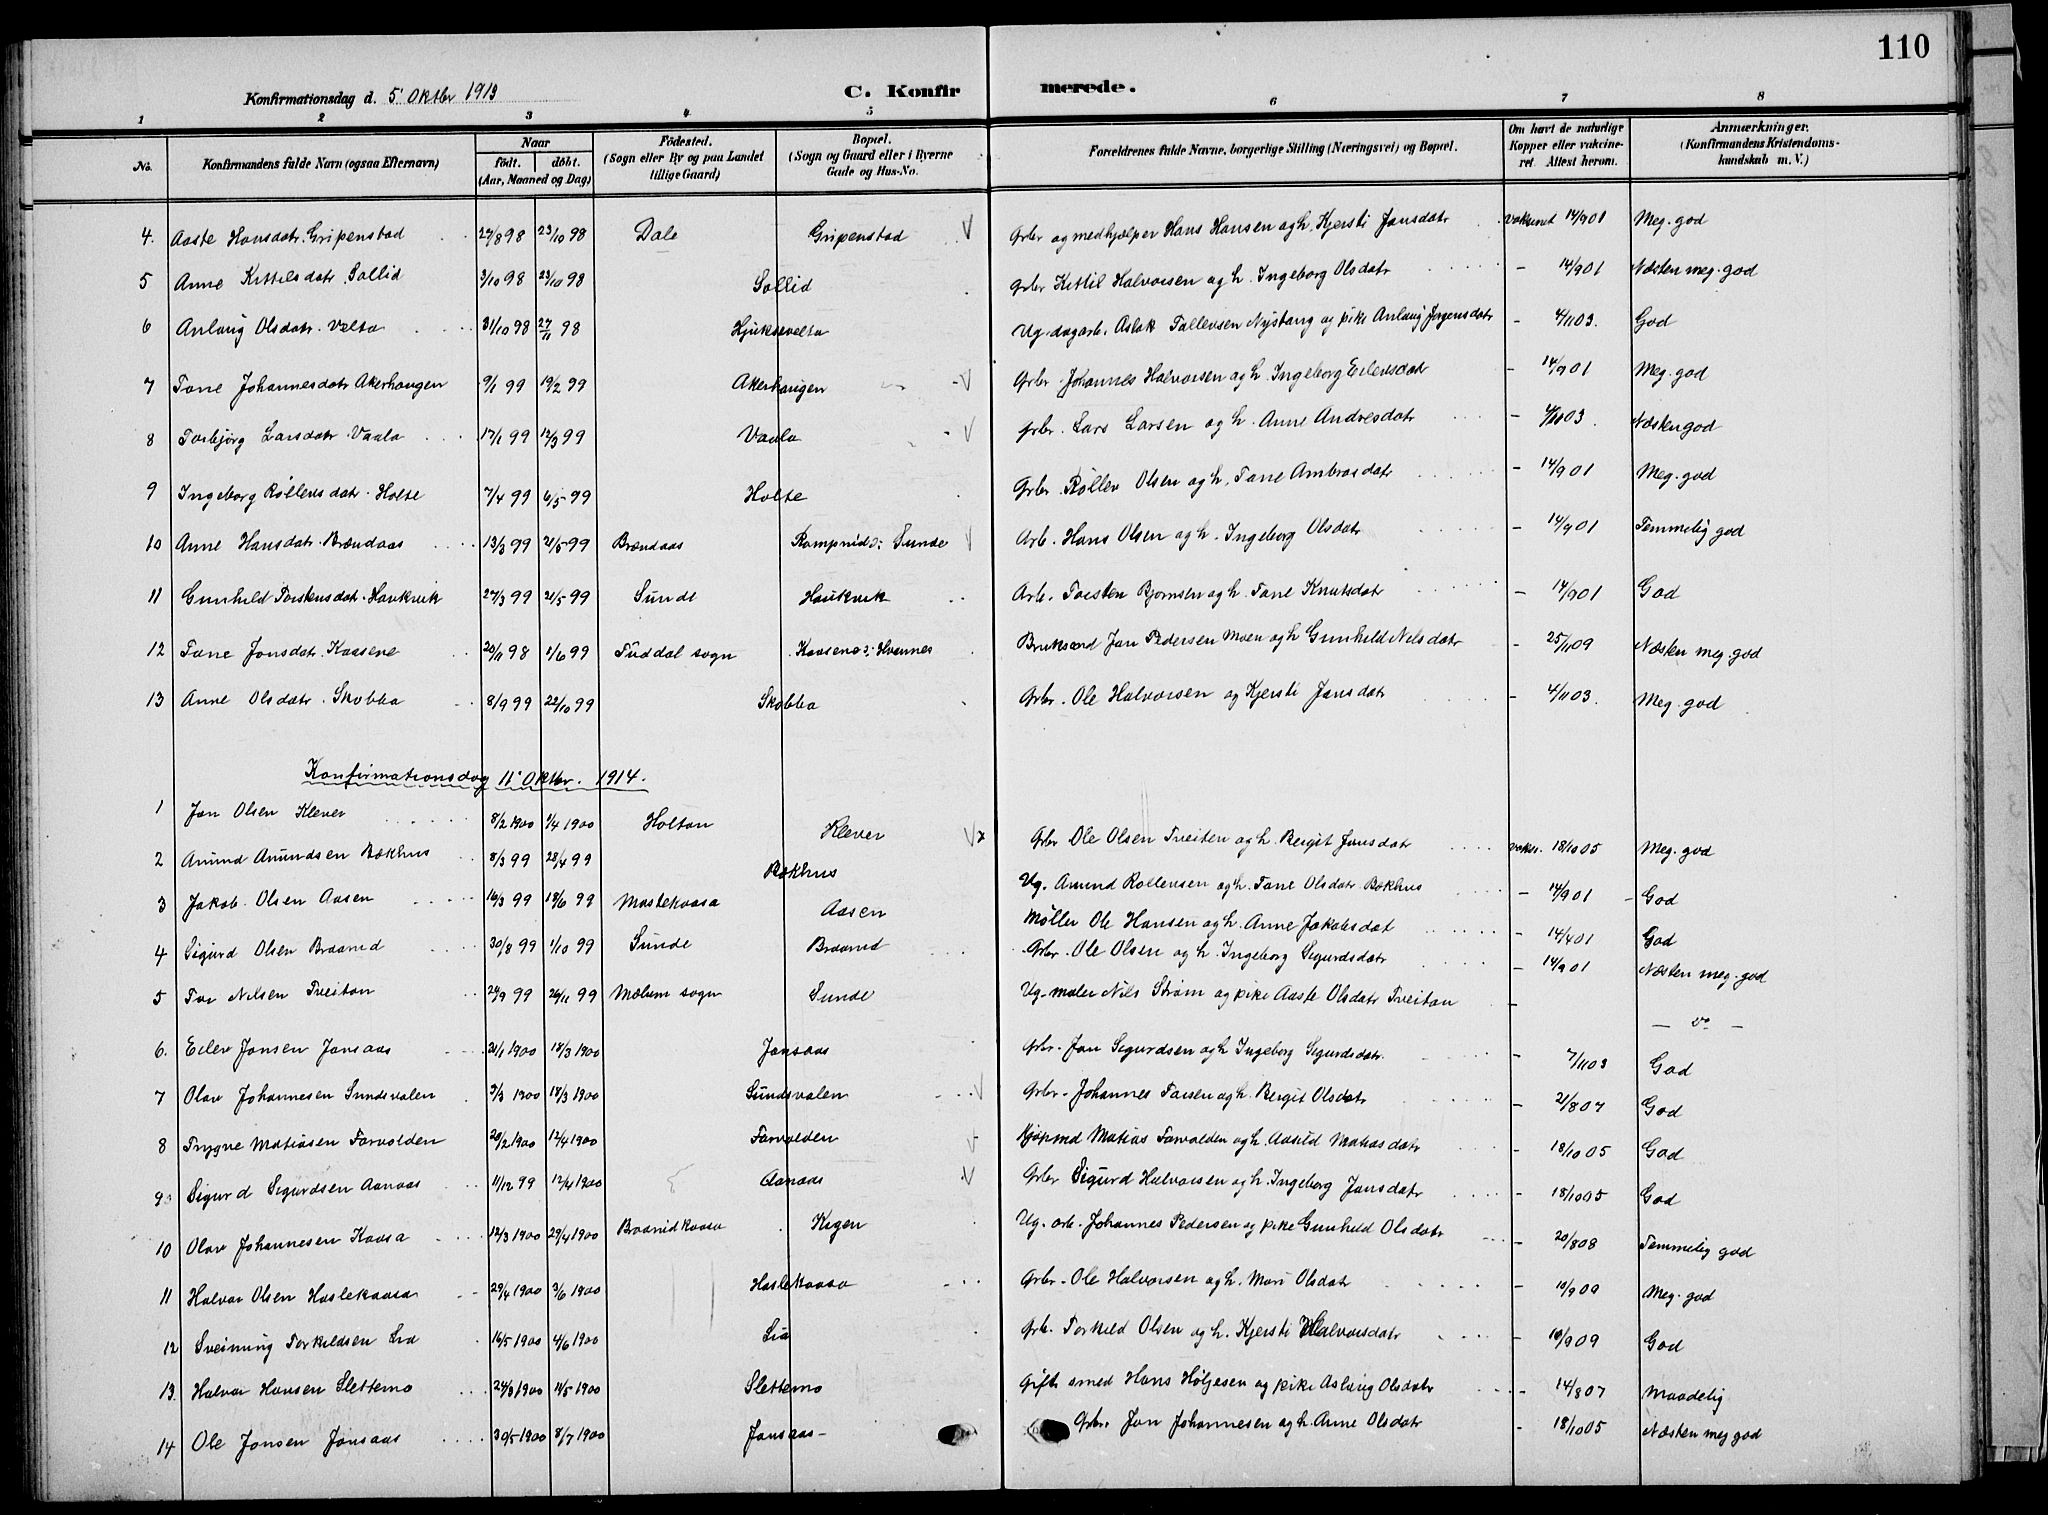 110
Konfirmationsdag d. 5' Oktbr 1913
C. Konfirmerede.
1 2 3 4 5 6 7 8
No. Konfirmandens fulde Navn (ogsaa Efternavn) Naar født. døbt. (Aar, Maaned og Dag) Fødested. (Sogn eller By og paa Landet tillige Gaard) Bopæl. (Sogn og Gaard eller i Byerne Gade og Hus-No. Forældrenes fulde Navne, borgerlige Stilling (Næringsvei) og Bopæl. Om havt de naturlige Kopper eller vakcineret. Attest herom. Anmærkninger. (Konfirmandens Kristendomskundskab m. V.)
4. Aaste Hansdatr. Gripenstad 27/8 98 23/10 98 Dale Gripenstad V Grbr og medhjælper Hans Hansen og h. Kjersti Jonsdatr vaksinet 14/9 01 Meg. god
5 Anne Kittilsdatr Sollid 3/10 98 23/10 98 Sollid Grbr Kittil Halvorsen og h. Ingeborg Olsdatr - 14/9 01 Næsten meg. god
6 Anlaug Olsdatr. Velta 31/10 98 27/11 98 Hjuksevelta Ug. dagarb. Aslak Tallevsen Nystaug og pike Anlaug Jørgensdatr - 4/11 03. God
7 Tone Johannesdatr Akerhaugen 9/1 99 19/2 99 Akerhaugen V Grbr. Johannes Halvorsen og h. Ingeborg Eilevsdatr - 14/9 01 Meg. god
8 Torbjørg Larsdatr. Vaala 17/1 99 12/3 99 Vaala V Grbr. Lars Larsen og h. Anne Andresdatr - 4/11 03. Næsten god
9 Ingeborg Røllevsdatr. Holte 7/4 99 6/5 99 Holte Grbr. Røllev Olsen og h. Tone Ambrosdatr - 14/9 01 Meg. god
10 Anne Hansdatr. Brændaas 13/3 99 21/5 99 Brændaas Rompnid: Sunde V Arb. Hans Olsen og h. Ingeborg Olsdatr - 14/9 01 Temmelig god
11 Gunhild Torstensdat. Haukvik 27/3 99 21/5 99 Sunde Haukvik Arb. Torsten Bjørnsen og h. Tone Knutsdatr - 14/9 01 God
12 Tone Jonsdatr. Kaasene 20/11 98 1/6 99 Tuddal sogn Kaasene: Hvamnes Bruksarb Jon Pedersen Moen og h Gunhild Nilsdatr - 25/11 09 Næsten meg. god
13 Anne Olsdatr. Skobba 8/9 99 22/10 99 Skobba Grbr. Ole Halvorsen og Kjersti Jonsdatr - 4/11 03. Meg. god
Konfirmationsdag 11' Oktbr. 1914.
1 Jon Olsen Klever 8/2 1900 1/4 1900 Holtan Klever V x Grbr Ole Olsen Tveiten og h. Bergit Jonsdatr vaksi. 18/10 05 Meg. god
2 Amund Amundsen Bækhus 8/3 99 28/4 99 Bækhus Ug. Amund Rollevsen og h. Tone Olsdatr Bækhus - 14/9 01 - God
3 Jakob Olsen Aasen 16/3 99 18/6 99 Mastekaasa Aasen Møller Ole Hansen og h. Anne Jakobsdat 14/4 01 God
4 Sigurd Olsen Braaned 30/8 99 1/10 99 Sunde Braaned Grbr. Ole Olsen og h. Ingeborg Sigurdsdatr - 14/9 01 Næsten meg. god
5 Tor Nilsen Tveitan 24/9 99 26/11 99 Mælum sogn Sunde Ug. maler Nils Strøm og pike Aaste Olsdatr Tveitan - - do -
6. Eilev Jonsen Jonsaas 21/1 1900 18/3 1900 Jonsaas Grbr. Jon Sigurdsen og h Ingeborg Sigurdsdatr. - 7/11 03 God
7 Olav Johannesen Sundsvalen 3/3 1900 18/3 1900 Sundsvalen V Grbr. Johannes Torsen og h. Bergit Olsdatr - 21/8 07 God
8 Trygve Matiasen Farvolden 20/2 1900 12/4 1900 Farvolden Kjøpmd Matias Farvolden og h. Aasild Matiasdatr - 18/10 05 God
9 Sigurd Sigurdsen Aanaas 11/12 99 12/4 1900 Aanaas V Grbr Sigurd Halvorsen og h. Ingeborg Jonsdatr - 18/10 05 God
10 Olav Johannesen Kaasa 12/3 1900 29/4 1900 Braanidkaasa Kigen Ug. arb. Johannes Pedersen og pike Gunhild Olsdatr - 20/8 08 Temmelig god
11 Halvor Olsen Haslekaasa 29/4 1900 3/6 1900 Haslekaasa Grbr. Ole Halvorsen og h. Mari Olsdatr - 10/9 09 Meg. god
12 Sveinung Torkildsen Lia 16/5 1900 4/6 1900 Lia Grb. Torkild Olsen og h. Kjersti Halvorsdatr - 10/9 09 God
13. Halvor Hansen Slettemo 24/3 1900 11/5 1900 Slettemo Gift smed Hans Høljesen og pike Aslaug Olsdatr - 14/8 07 Maadelig
14 Ole Jonsen Jonsaas 30/5 1900 8/7 1900 Jonsaas Grbr. Jon Johannesen og h. Anne Olsdatr - 18/10 05 Næsten meg god